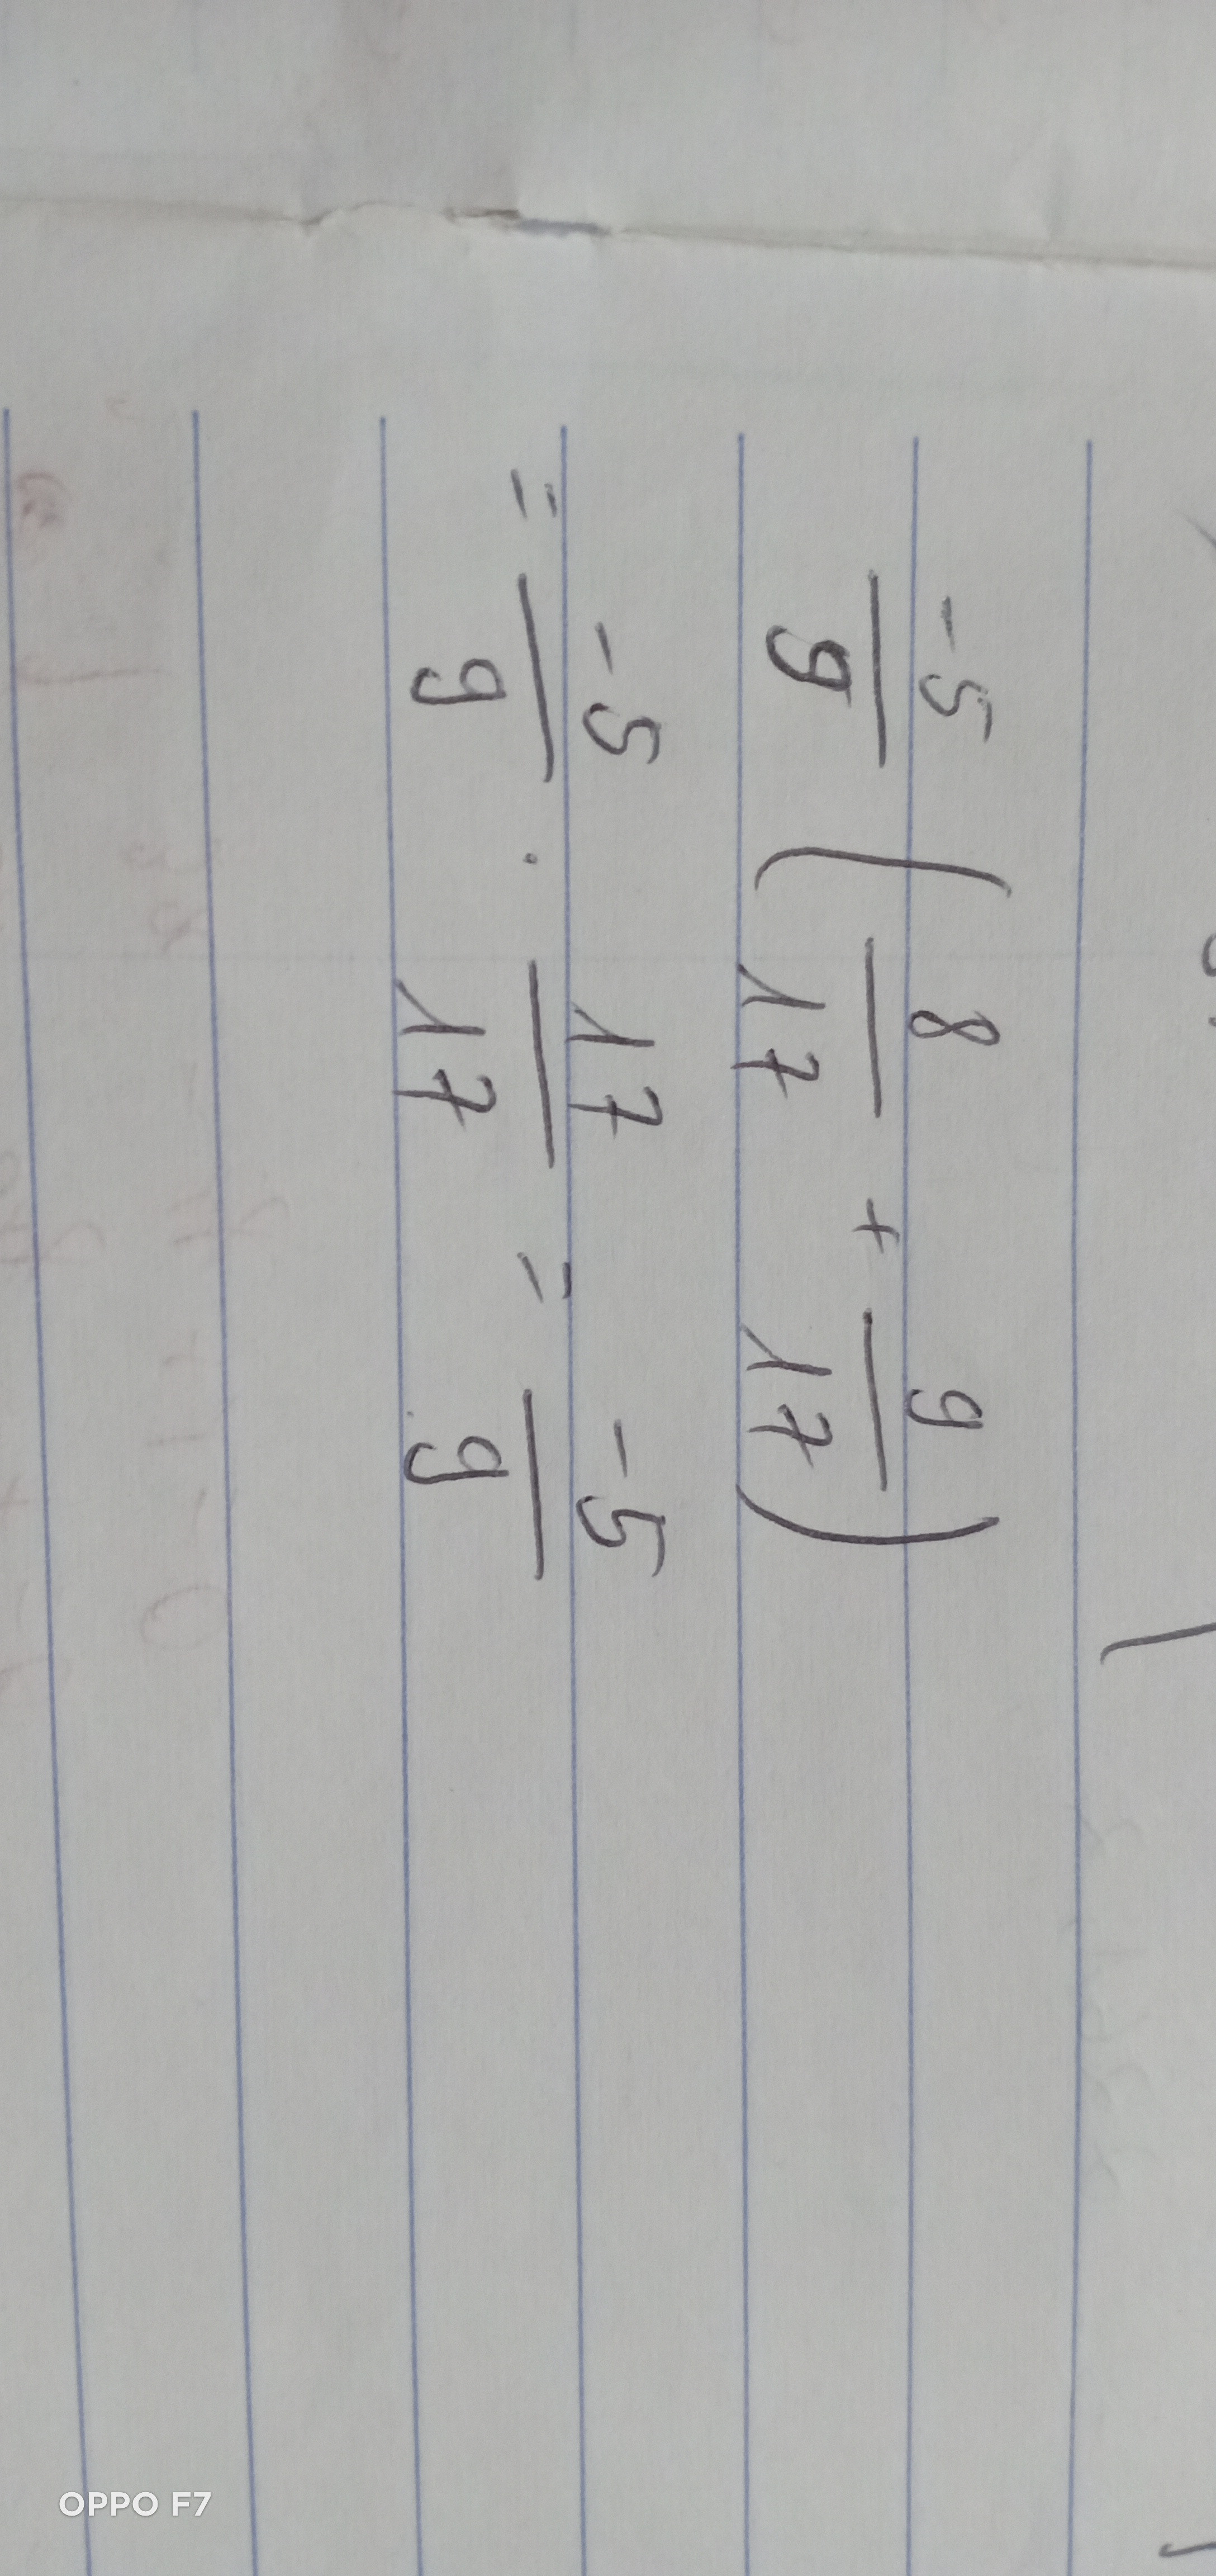 -5/9 (8/17 + 9/17)
= -5/9 . 17/17 = -5/9
OPPO F7